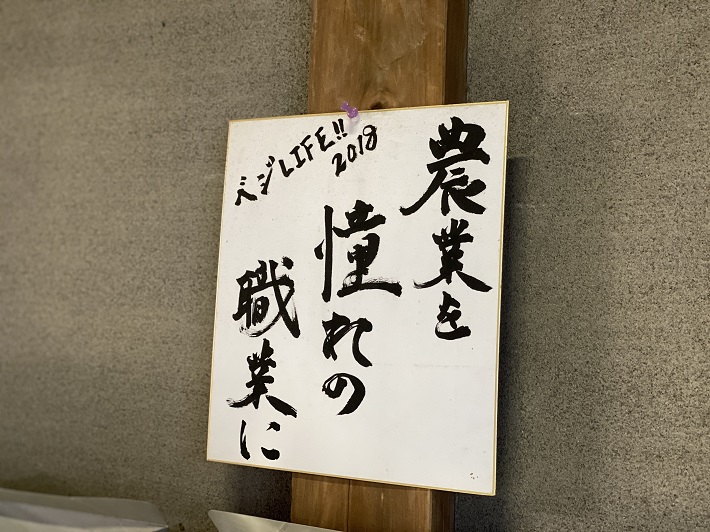 農業を
憧れの
職業に
ベジLIFE!!
2018